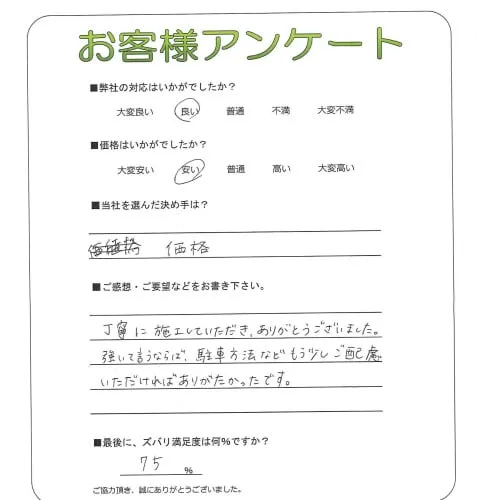 お客様アンケート
■弊社の対応はいかがでしたか？
大変良い 良い 普通 不満 大変不満
■価格はいかがでしたか？
大変安い 安い 普通 高い 大変高い
■当社を選んだ決め手は？
価格
■ご感想・ご要望などをお書き下さい。
丁寧に施工していただき、ありがとうございました。
強いて言うならば、駐車方法などもう少しご配慮
いただければありがたかったです。
■最後に、ズバリ満足度は何％ですか？
75 %
ご協力頂き、誠にありがとうございました。